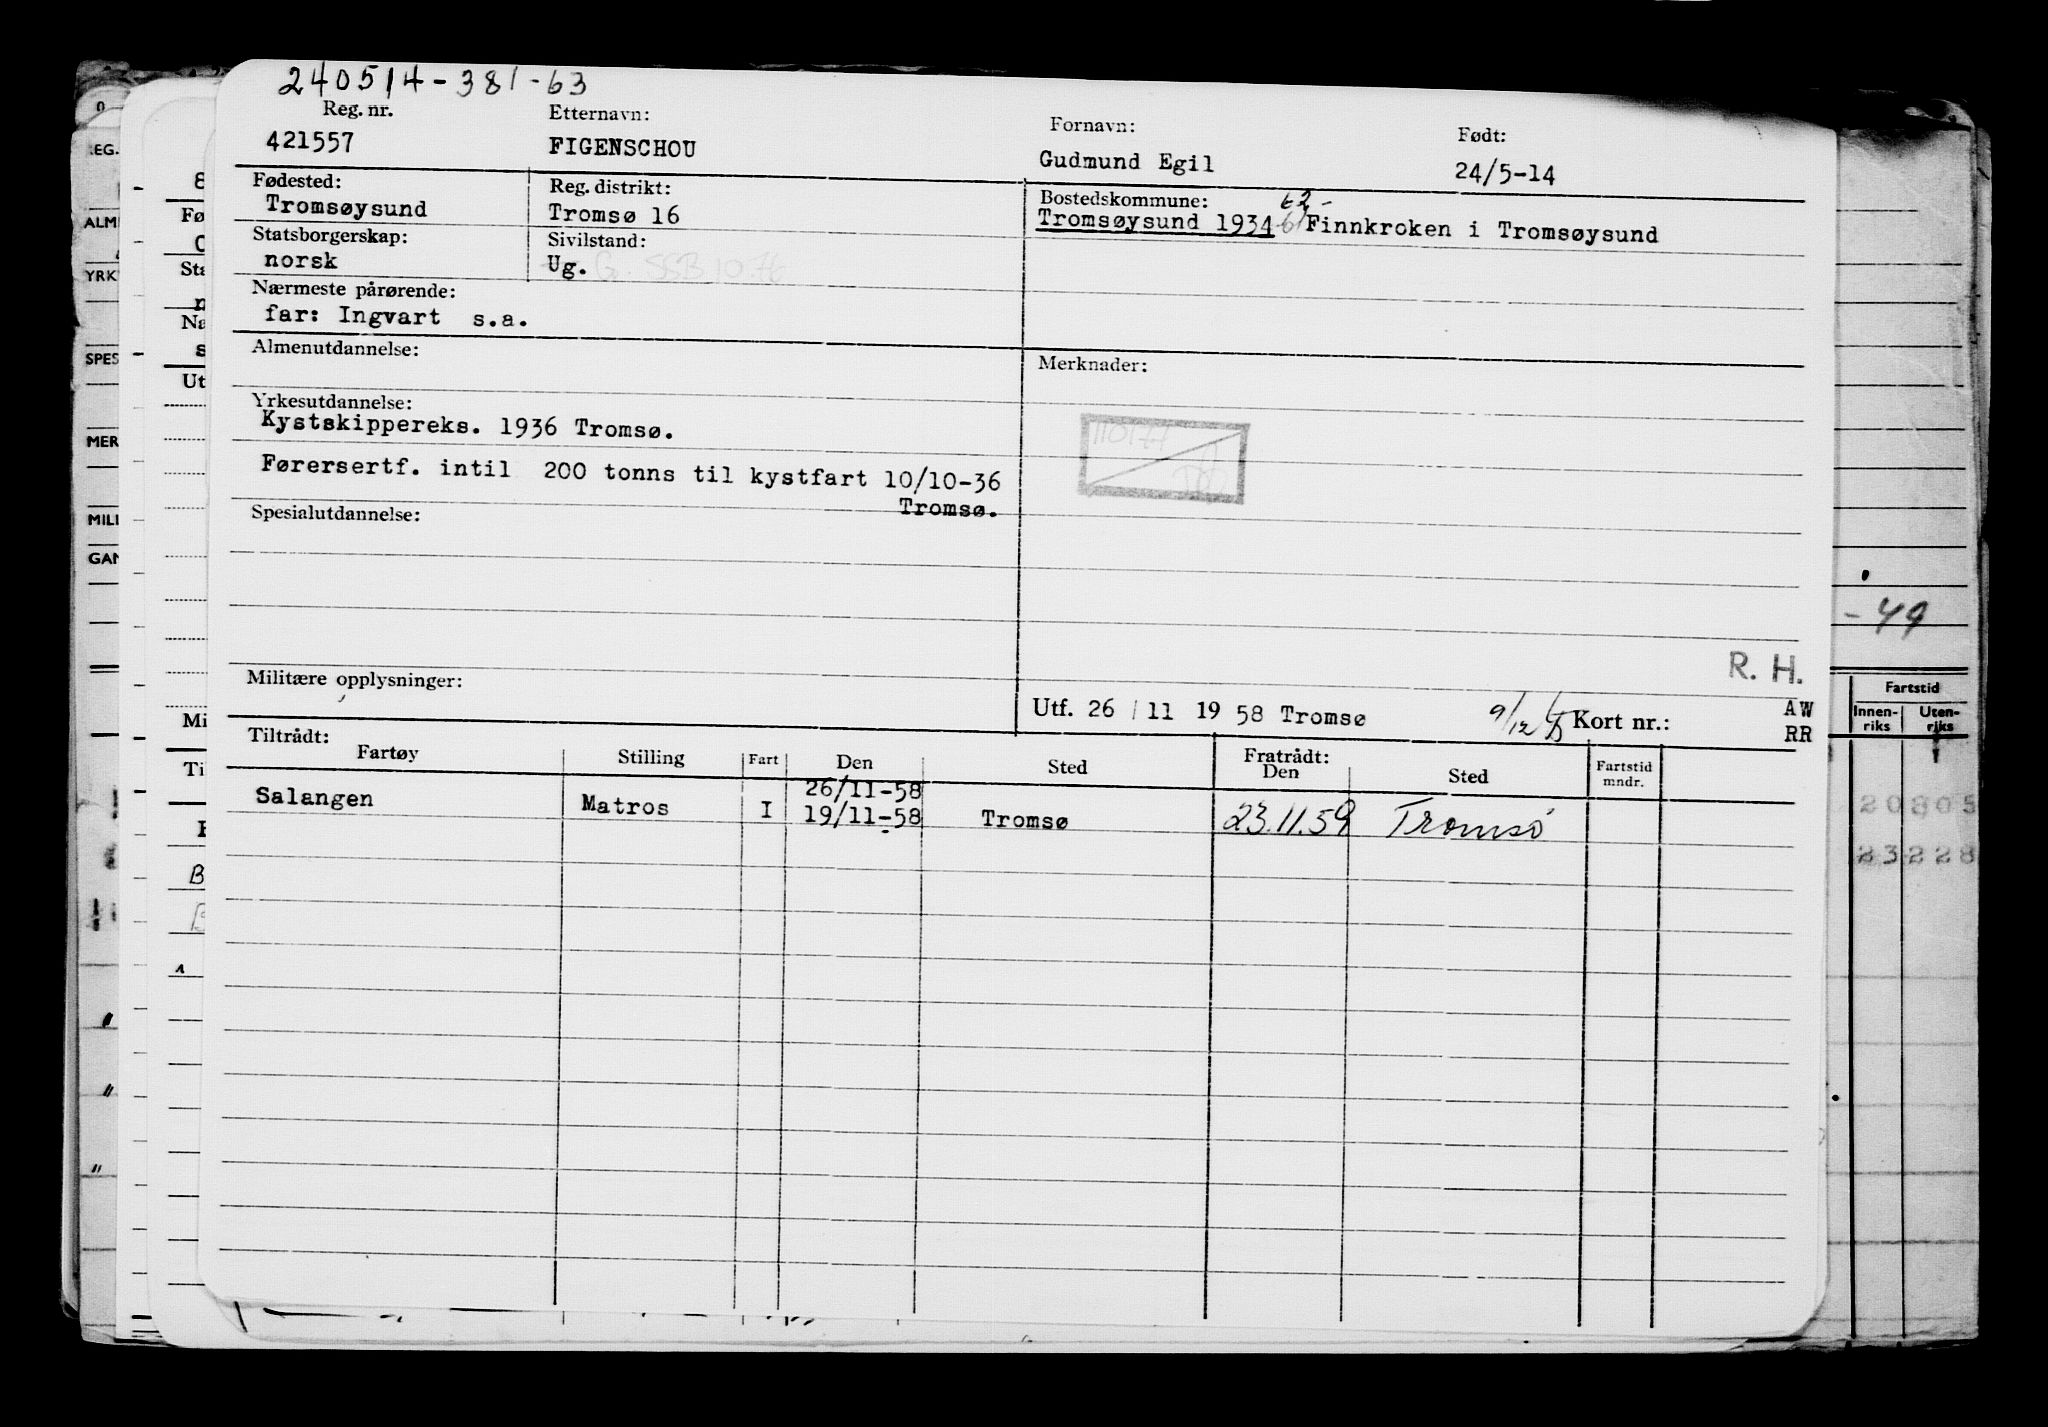 240514-381-63
Reg. nr. Etternavn: Fornavn: Født:
421557 FIGENSCHOU Gudmund Egil 24/5-14
Fødested: Reg. distrikt: Bostedskommune:
Tromsøysund Tromsø 16 Tromsøysund 1934 Finnkroken i Tromsøysund
Statsborgerskap: Sivilstand:
norsk Ug.
Nærmeste pårørende:
far: Ingvart s.a.
Almenutdannelse: Merknader:
Yrkesutdannelse:
Kystskippereks. 1936 Tromsø.
Førersertf. intil 200 tonns til kystfart 10/10-36
Tromsø.
Spesialutdannelse:
R. H.
Militære opplysninger:
Utf. 26 / 11 19 58 Tromsø 9/12 Kort nr.: AW
RR
Tiltrådt: Fratrådt:
Fartøy Stilling Fart Den Sted Den Sted Fartstid
mndr.
26/11-58
Salangen Matros I 19/11-58 Tromsø 23.11.59 Tromsø
REG.
YRK
SPES
MER
MILI
GAN
Fø
Sta
Na
Ut
Mi
Ti
-49
Fartstid
Innen-
riks
Uten-
riks
20805
23228